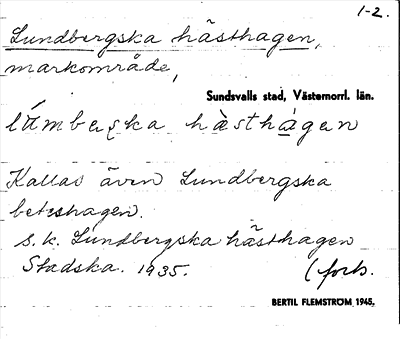 1-2.
Lundbergska hästhagen,
markområde,
Sundsvalls stad, Västernorrl. län.
hàsthàgen
Kallas även Lundbergska
beteshagen.
s.k. Lundbergska hästhagen
Stadska. 1935.
(forts.
BERTIL FLEMSTRÖM 1945.